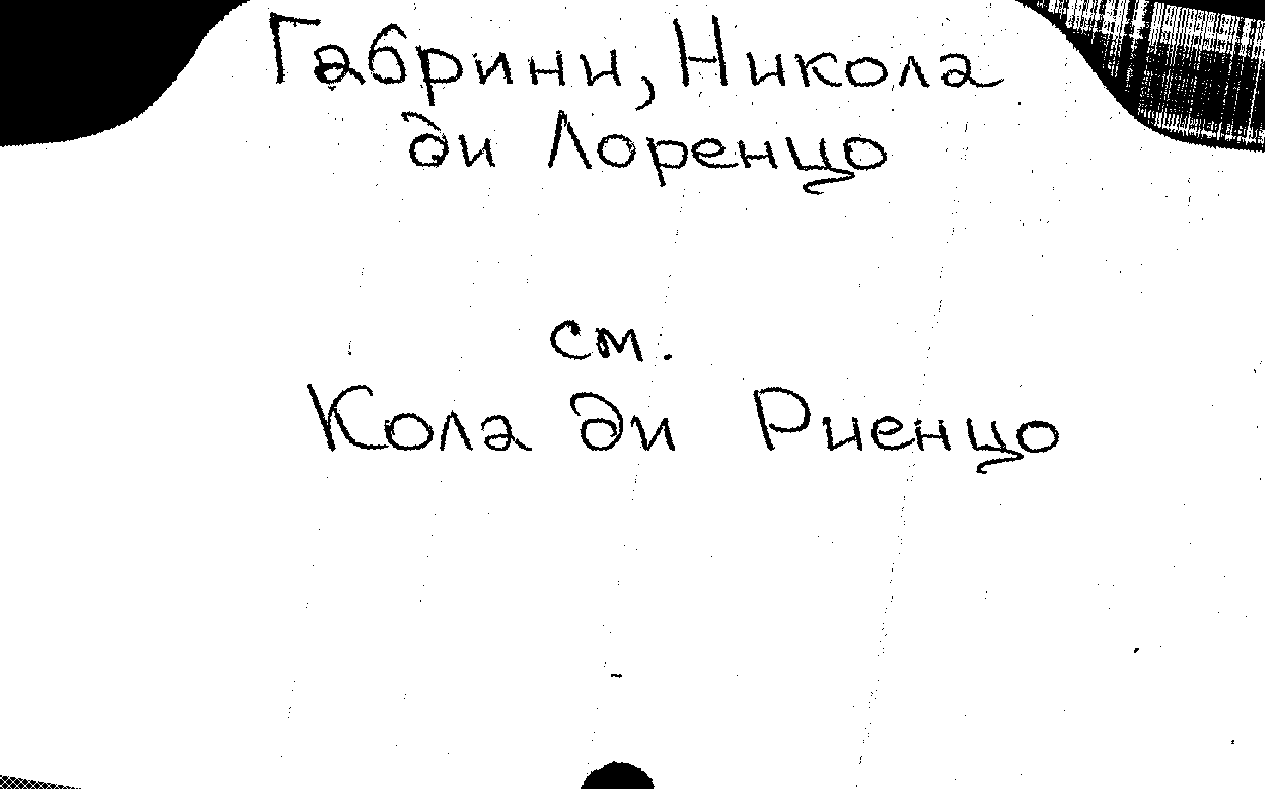 Габрини, Никола
ди Лоренцо
см.
Кола ди Риенцо